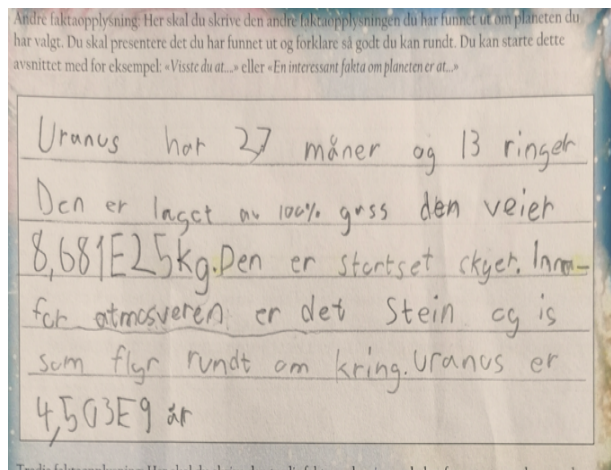 Andre faktaopplysning: Her skal du skrive den andre faktaopplysningen du har funnet ut om planeten du
har valgt. Du skal presentere det du har funnet ut og forklare så godt du kan rundt. Du kan starte dette
avsnittet med for eksempel: «Visste du at...» eller «En interessant fakta om planeten er at...»
Uranus har 27 måner og 13 ringer
Den er laget av 100% gass den veier
8,681E25kg. Den er stortset skyer. Inna-
for atmosveren er det Stein og is
som flyr rundt om kring. Uranus er
4,503E9 år